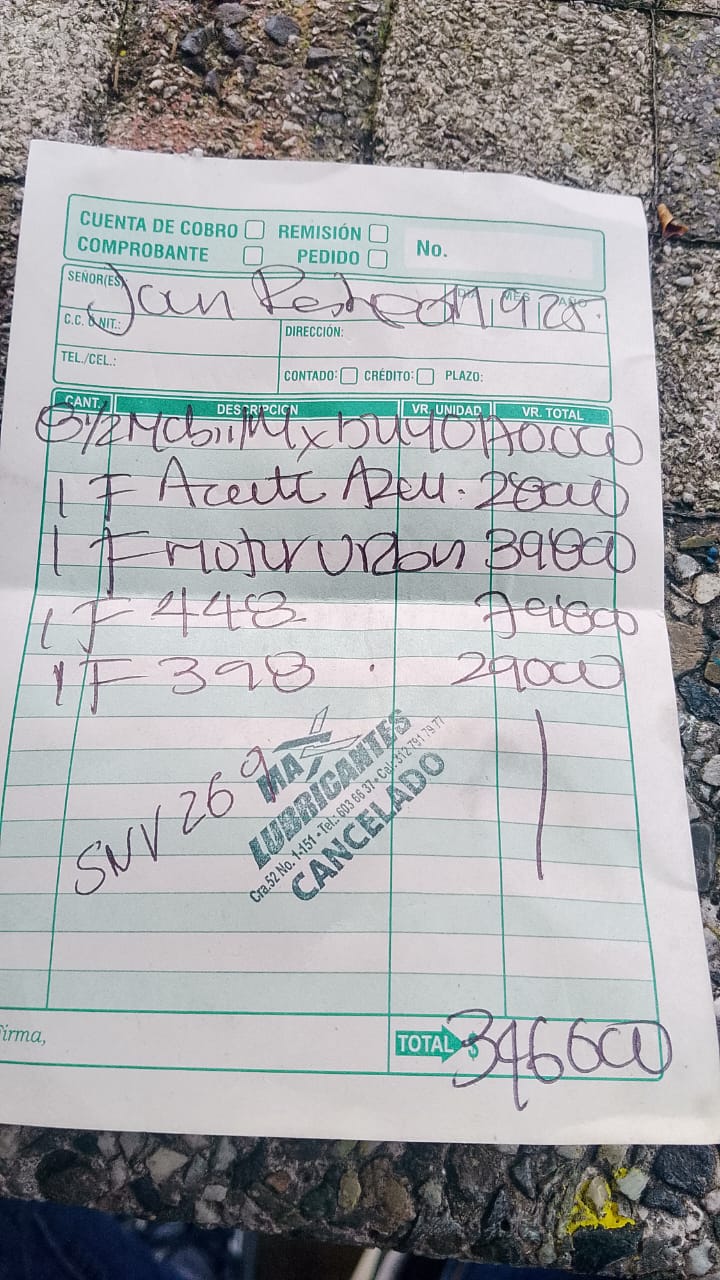 CUENTA DE COBRO REMISIÓN
COMPROBANTE PEDIDO No.
SEÑOR(ES) DÍA MES AÑO
C.C. Ó NIT.: DIRECCIÓN:
TEL./CEL.:
CONTADO: CRÉDITO: PLAZO:
CANT. DESCRIPCION VR. UNIDAD VR. TOTAL
1 F Aceite Azul. 28000
1 F motor Urban 39000
1 F 448
1 F 398 29000
SNV 269
MA
LUBRICANTES
Cra.52 No. 1-151 • Tel.: 603 66 37 • Cel.: 312 791 79 77
CANCELADO
Firma,
TOTAL $ 346000